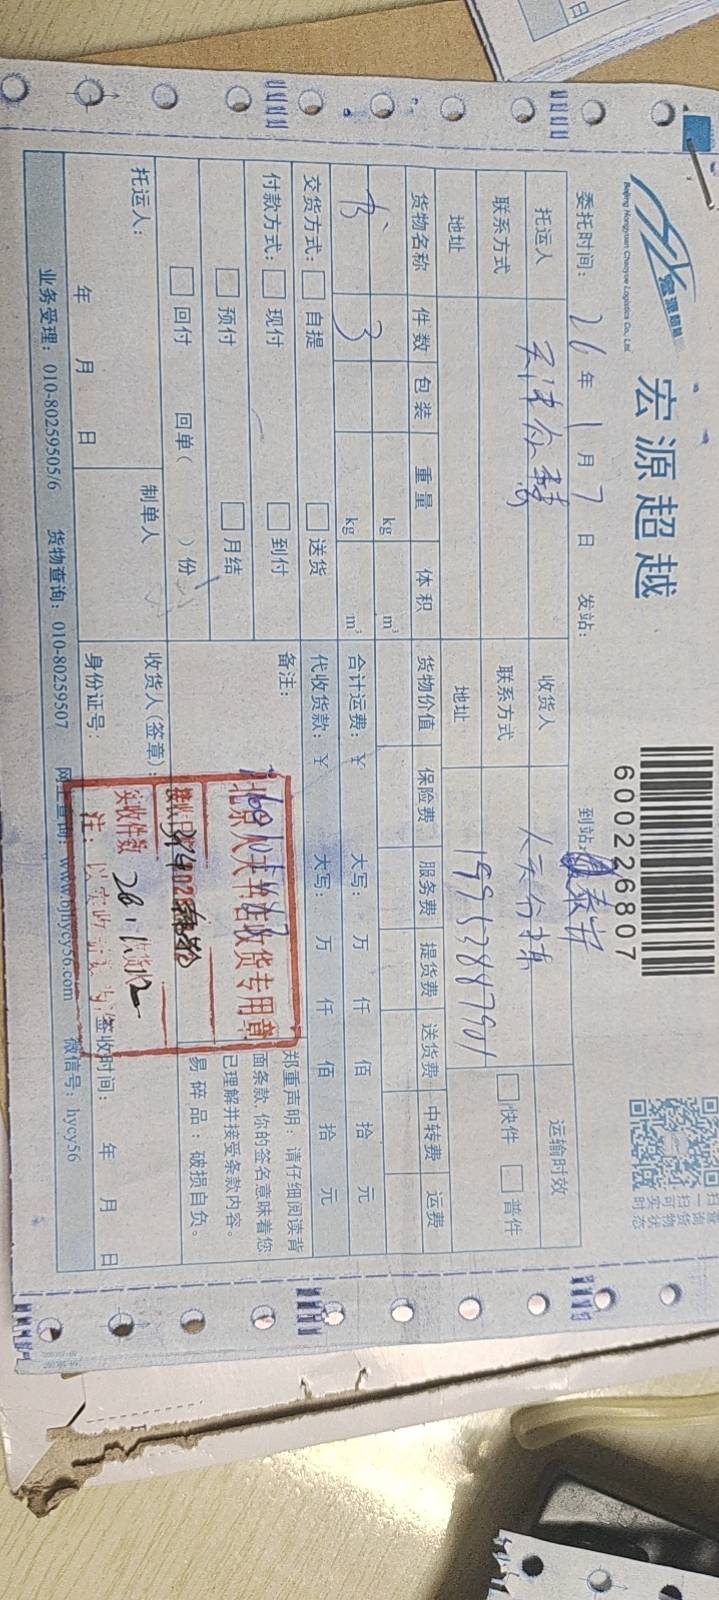 宏源超越
Beijing Hongyuan Chaoyue Logistics Co., Ltd.
600226807
委托时间: 26 年 1 月 7 日 发站: 到站: 泰安
托运人 收货人 人天分拣 运输时效
联系方式 联系方式 快件 普件
地址 地址 19953887901
货物名称 件数 包装 重量 体积 货物价值 保险费 服务费 提货费 送货费 中转费 运费
kg m³
书 3 kg m³ 合计运费: ¥ 大写: 万 仟 佰 拾 元
交货方式: 自提 送货 代收货款: ¥ 大写: 万 仟 佰 拾 元
付款方式: 现付 到付 备注:
预付 月结
回付 回单( )份
郑重声明:请仔细阅读背
面条款,你的签名意味着您
已理解并接受条款内容。
易碎品:破损自负。
北京人天书店收货专用章
实收件数
托运人: 制单人 收货人(签章):
年 月 日 身份证号: 签收时间: 年 月 日
业务受理: 010-80259505/6 货物查询: 010-80259507 网上查询: www.bjhycy56.com 微信号: hycy56